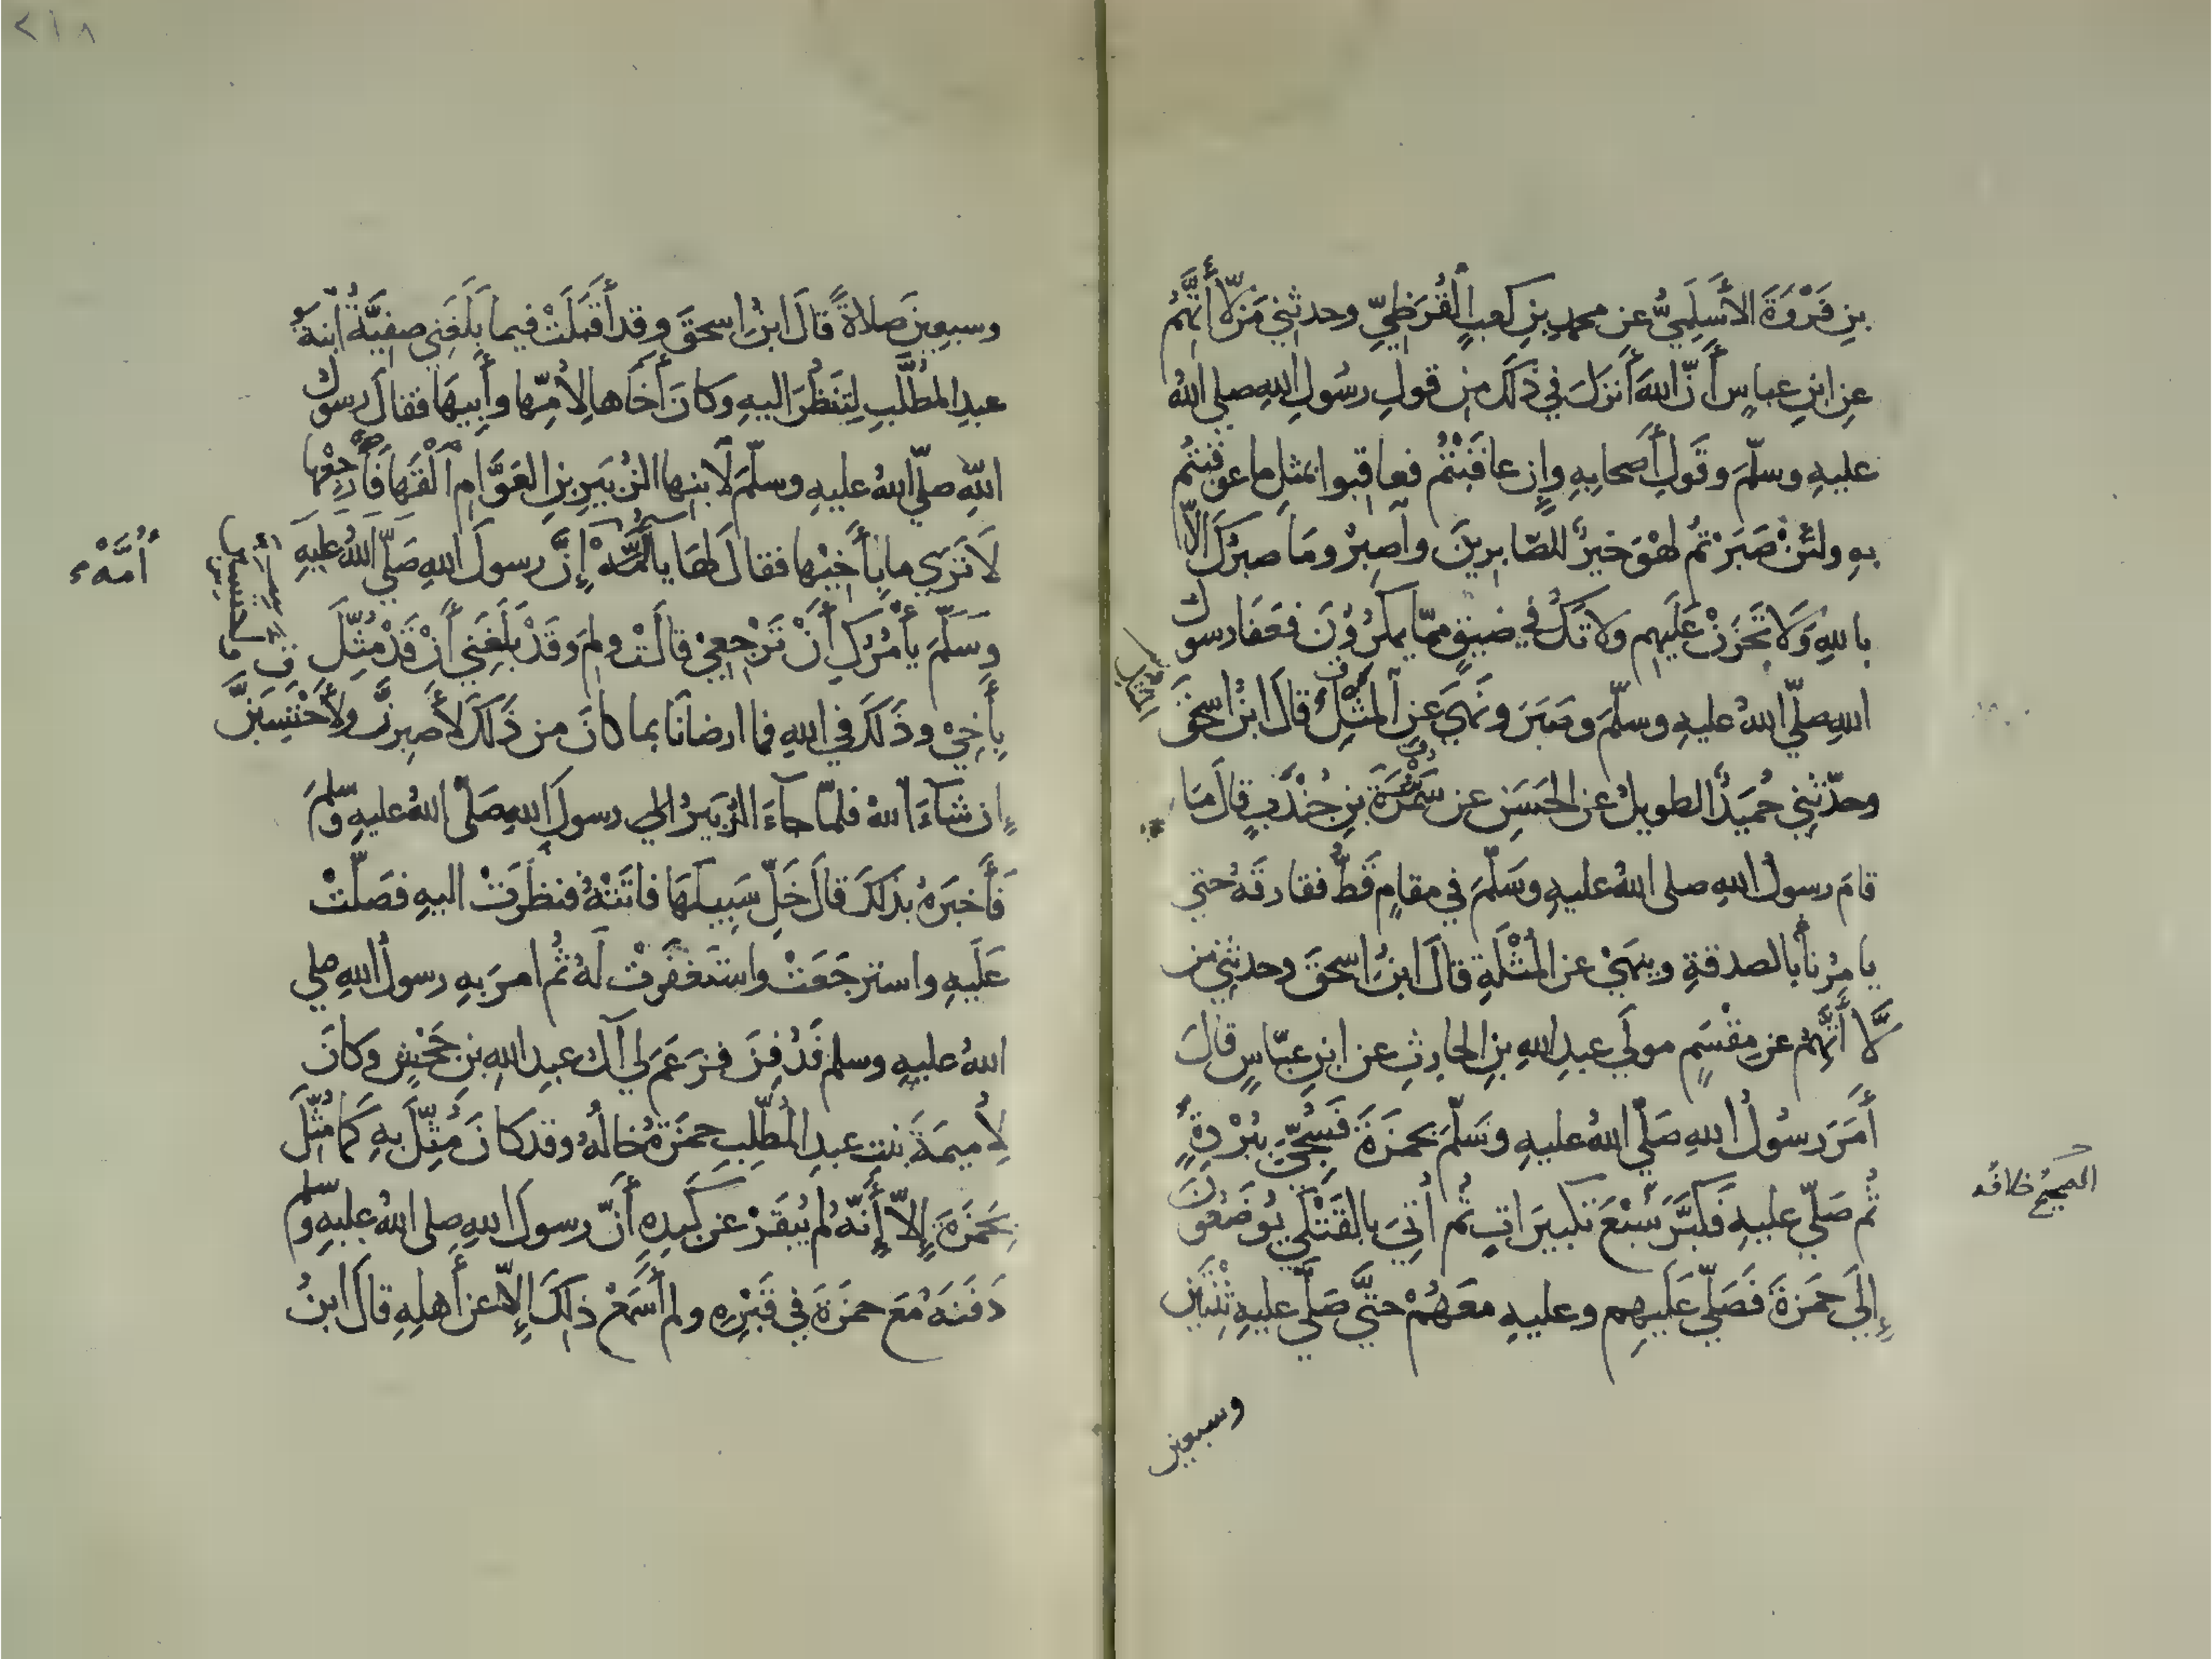 بنِ فَرْوَةَ الأَسْلَمِيُّ عن محمدِ بنِ كعبٍ القُرَظِيِّ وحدثني مَن لّا أَتَّهِمُ
عنِ ابنِ عباسٍ أَنّ اللهَ أَنزَلَ في ذَلكَ مِن قولِ رسُولِ اللهِ صلى اللهُ
عليهِ وسلّمَ وقَولِ أَصحابِهِ وإِن عاقَبْتُمْ فعاقِبوا بمثلِ ما عوقبتُم
بهِ ولئنْ صَبَرْتُم لهْوَ خيرٌ للصّابرينَ وآصبِرْ ومَا صبرُكَ الّا
باللهِ وَلَا تَحْزَنْ عَلَيهِم ولا تَكُ في ضيقٍ ممّا يمكرُوْنَ فعَفَا رسول
اللهِ صلّى اللهُ عليهِ وسلّمَ وصَبَرَ ونَهَى عنِ المثْلِ قالَ ابنُ اسحٰقَ
وحدّثنِي حُمَيدٌ الطويلُ عن الحَسَنِ عن سَمُرَةَ بنِ جُنْدَبٍ قالَ مَا
قامَ رسولُ اللهِ صلى اللهُ عليهِ وسَلّمَ في مقامٍ قَطُّ ففارقَهُ حتى
يامُرنا بالصدقةِ وينهَىْ عن المُثْلَةِ قالَ ابنُ اسحٰقَ وحدثني من
لَّا أَتَّهِمُ عن مِقْسَمٍ مولَى عبدِ اللهِ بنِ الحارِثِ عن ابنِ عبّاسٍ قالَ
أَمَرَ رسُولُ اللهِ صَلّى اللهُ عليهِ وسَلّمَ بحمزَةَ فَسُجِّيَ بِبُرْدَةٍ
ثُم صَلّى عليهِ فَكَبَّرَ سَبْعَ تكبيرَاتٍ ثُم أُتِيَ بالقَتْلَى يُوضَعُونَ
إِلَى حَمزةَ فَصَلّى عَلَيهِم وعليهِ معَهُمْ حتَّى صَلَّى عليهِ ثِنْتَيْنِ
وسبعين
الصحيح خلافه
٢١٨
وسبعينَ صلاةً قالَ ابنُ اسحٰقَ وقد أَقْبَلَتْ فيما بَلَغَنِي صفيَّةُ ابنةُ
عبدِ المطَّلبِ لِتَنظُرَ اليهِ وكانَ أَخَاها لِأُمِّها وأَبِيهَا فقالَ رسول
اللهِ صلّى اللهُ عليهِ وسلّمَ لِابنِها الزُبَيرِ بنِ العَوَّامِ الْقَهَا فَأَرجِعْها
لَا تَرَى ما بِأَخِيْها فقالَ لهَا يا أُمَّهْ إِنَّ رسولَ اللهِ صَلّى اللهُ عليهِ
وسَلَّمَ يأْمُرُكِ أَنْ تَرْجِعِيْ قالَتْ ولِمَ وقَدْ بَلَغَنِي أَنْ قَدْ مُثِّلَ
بِأَخِيْ وذَلكَ في اللهِ فما ارضانَا بما كانَ من ذَلكَ لأَصبِرنَّ ولأَحْتَسِبَنَّ
إِن شآءَ اللهُ فلمّا جآءَ الزُبَيرُ الى رسولِ اللهِ صَلّى اللهُ عليهِ وسلمَ
فأَخبَرَهُ بذَلكَ قالَ خَلِّ سَبِيلَهَا فاتَتْهُ فنظَرَتْ اليهِ فصَلّتْ
عَلَيهِ واسترجَعَتْ واستَغفَرتْ لَهُ ثُم امرَ بهِ رسولُ اللهِ صلى
اللهُ عليهِ وسلم فَدُفِنَ فزَعَمَ لي آلُ عبدِ اللهِ بنِ جَحْشٍ وكانَ
لأُميمَةَ بنتِ عبدِ المُطَّلبِ حمزَةُ خالُهُ وقد كانَ مُثِّلَ بهِ كَما مُثِّلَ
بِحَمْزَةَ إِلاّ أَنَّهُ لم يُبْقَرْ عن كَبِدِهِ أَنّ رسولَ اللهِ صلى اللهُ عليهِ وسلم
دَفنَهُ مَعَ حمزَةَ في قَبْرِهِ ولم أَسْمَعْ ذلِكَ إِلّا عن أَهلِهِ قالَ ابنُ
أُمَّهْ